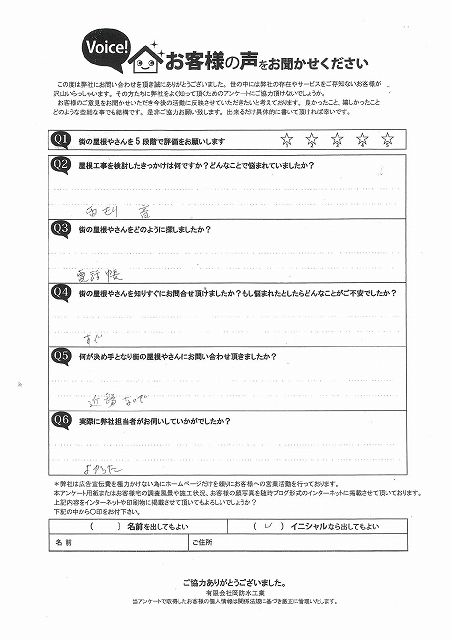 Voice! お客様の声をお聞かせください
この度は弊社にお問い合わせを頂き誠にありがとうございます。世の中には弊社の存在やサービスをご存知ないお客様が
沢山いらっしゃいます。その方たちに弊社をよく知って頂くためのアンケートにご協力頂けないでしょうか。
お客様のご意見をお聞かせいただき今後の活動に反映させていただきたいと考えております。良かったこと、嬉しかったこと
どのような些細な事でも結構です。是非ご協力お願い致します。出来るだけ具体的に書いて頂ければ幸いです。
Q1 街の屋根やさんを5段階で評価をお願いします ☆ ☆ ☆ ☆ ☆
Q2 屋根工事を検討したきっかけは何ですか？どんなことで悩まれていましたか？
雨もり
Q3 街の屋根やさんをどのように探しましたか？
電話帳
Q4 街の屋根やさんを知りすぐにお問合せ頂けましたか？もし悩まれたとしたらどんなことがご不安でしたか？
すぐ
Q5 何が決め手となり街の屋根やさんにお問い合わせ頂きましたか？
近
Q6 実際に弊社担当者がお伺いしていかがでしたか？
よかった
＊弊社は広告宣伝費を極力かけない為にホームページだけを頼りにお客様への営業活動を行っております。
本アンケート用紙またはお客様宅の調査風景や施工状況、お客様の顔写真を随時ブログ形式のインターネットに掲載させて頂いております。
上記内容をインターネットや印刷物に掲載させて頂いてもよろしいでしょうか？
下記の中から〇印をお付下さい。
（ ）名前を出してもよい （ レ ）イニシャルなら出してもよい
名 前 ご住所
ご協力ありがとうございました。
有限会社岡防水工業
当アンケートで取得したお客様の個人情報は関係法規に基づき厳正に管理いたします。